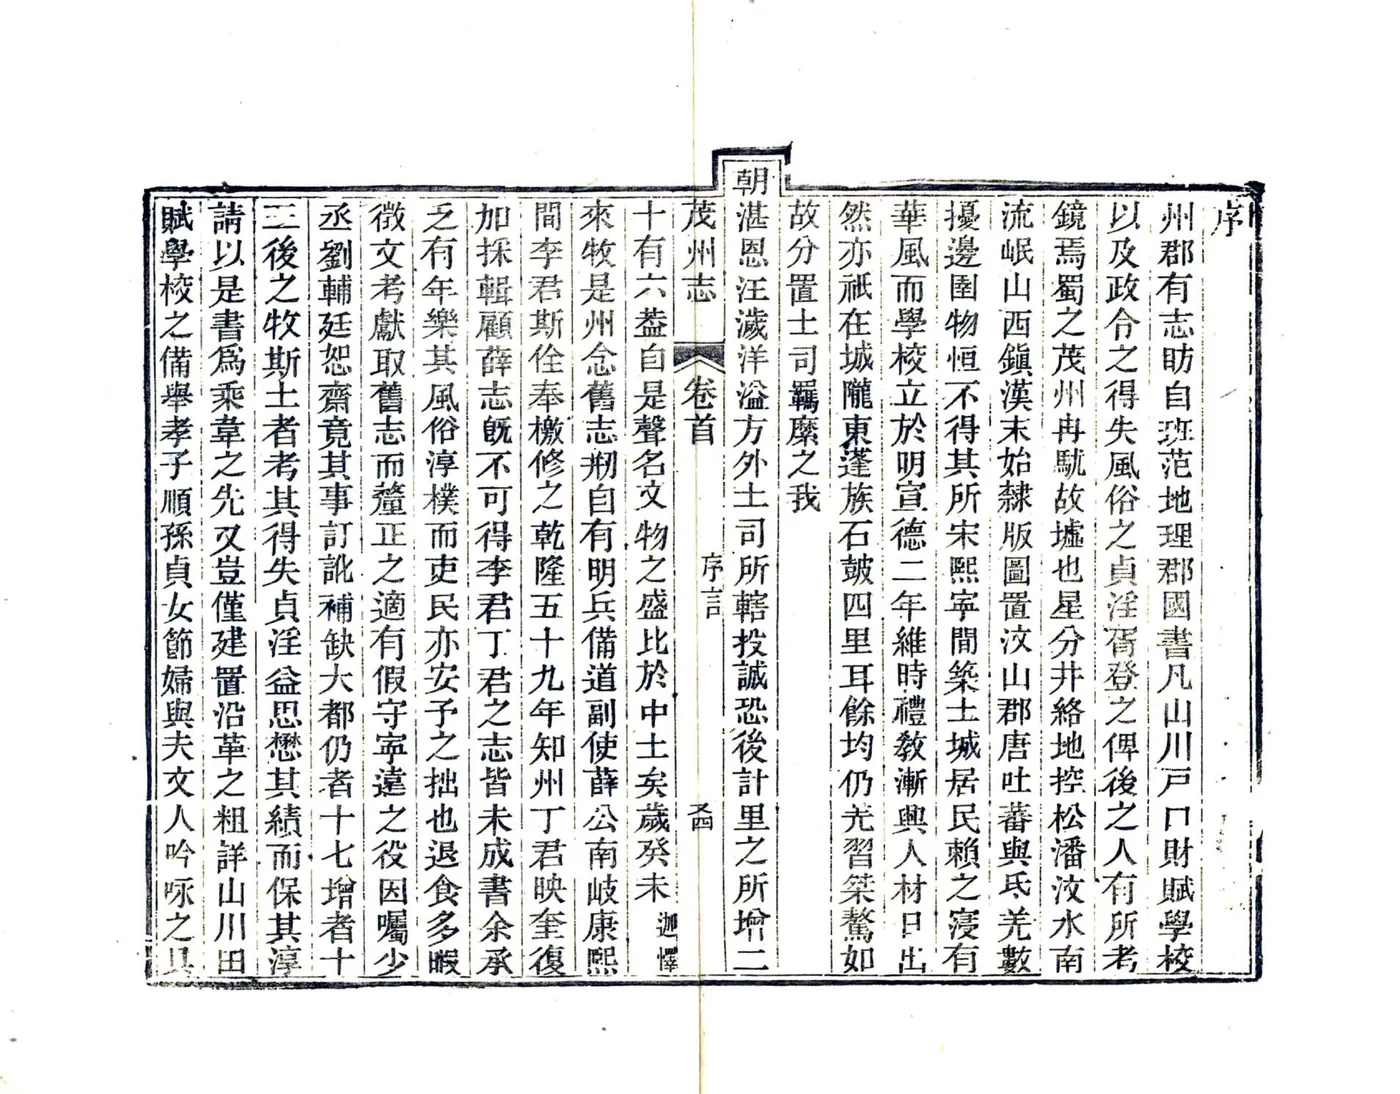 序
州郡有志昉自班范地理郡國書凡山川戸口財賦學校
以及政合之得失風俗之貞淫胥登之俾後之人有所考
鏡焉蜀之茂州冉駹故墟也星分井絡地控松潘汶水南
流岷山西鎭漢末始隸版圖置汶山郡唐吐蕃與氐羌數
擾邊圉物恒不得其所宋熙寧間築土城居民賴之寖有
華風而學校立於明宣德二年維時禮敎漸興人材日出
然亦祇在城隴東蓬族石鼓四里耳餘均仍羌習桀驁如
故分置土司羈縻之我
朝湛恩汪濊洋溢方外土司所轄投誠恐後計里之所增二
茂州志 卷首 序言 四
十有六葢自是聲名文物之盛比於中土矣歲癸未 迦懌
來牧是州念舊志刱自有明兵備道副使薛公南岐康熙
間李君斯佺奉檄修之乾隆五十九年知州丁君映奎復
加採輯顧薛志旣不可得李君丁君之志皆未成書余承
乏有年樂其風俗淳樸而吏民亦安予之拙也退食多暇
徵文考獻取舊志而釐正之適有假守寧遠之役因囑少
丞劉輔廷恕齋竟其事訂訛補缺大都仍者十七增者十
三後之牧斯土者考其得失貞淫益思懋其績而保其淳
請以是書爲乘韋之先又豈僅建置沿革之粗詳山川田
賦學校之備舉孝子順孫貞女節婦與夫文人吟咏之具